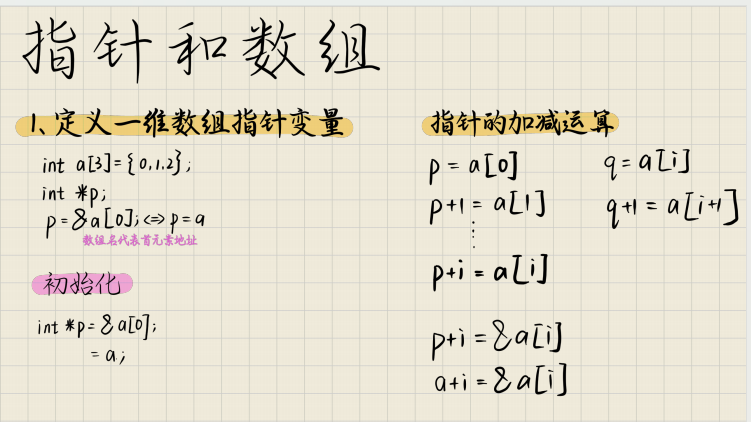 指针和数组
1、定义一维数组指针变量
int a[3]={0,1,2};
int *p;
p=&a[0];<=>p=a
数组名代表首元素地址
初始化
int *p=&a[0];
=a;
指针的加减运算
p=a[0]
q=a[i]
p+1=a[1]
q+1=a[i+1]
⋮
p+i=a[i]
p+i=&a[i]
a+i=&a[i]